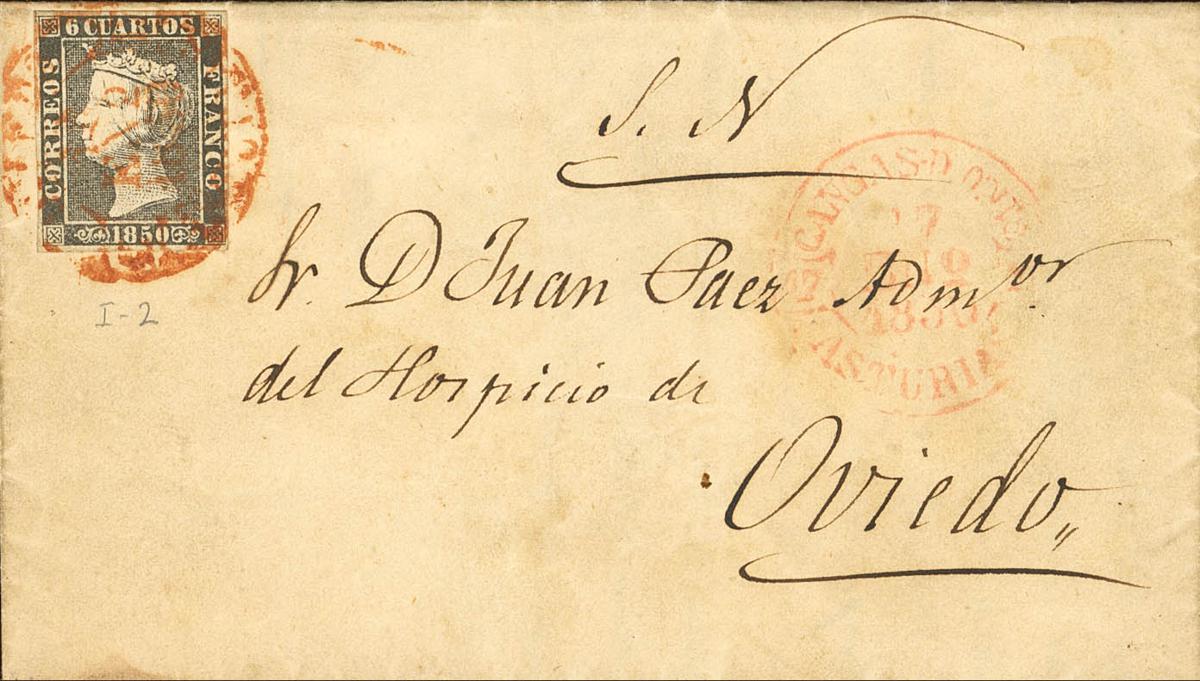 6 CUARTOS
CORREOS
FRANCO
1850
I-2
S. N
CANGAS-D ONIS
17
1850
ASTURIAS
Sr. D Juan Paez Admor
del Hospicio de
Oviedo